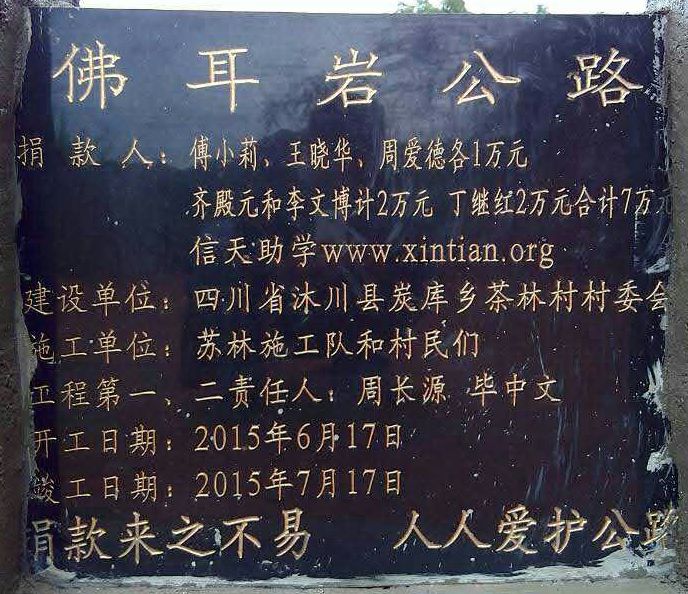 佛耳岩公路
捐款人：傅小莉、王晓华、周爱德各1万元
齐殿元和李文博计2万元 丁继红2万元合计7万元
信天助学www.xintian.org
建设单位：四川省沐川县炭库乡茶林村村委会
施工单位：苏林施工队和村民们
工程第一、二责任人：周长源 毕中文
开工日期：2015年6月17日
竣工日期：2015年7月17日
捐款来之不易 人人爱护公路